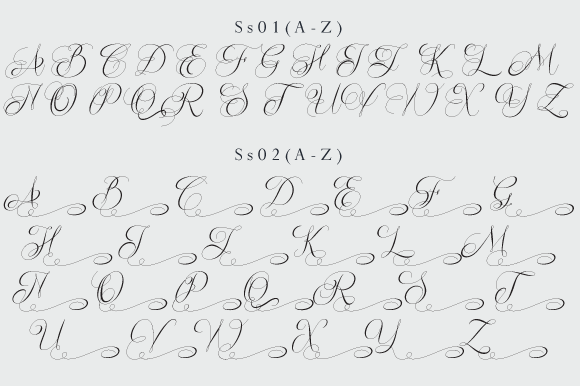 Ss01(A-Z)
A B C D E F G H I J K L M
N O P Q R S T U V W X Y Z
Ss02(A-Z)
A B C D E F G
H I J K L M
N O P Q R S T
U V W X Y Z